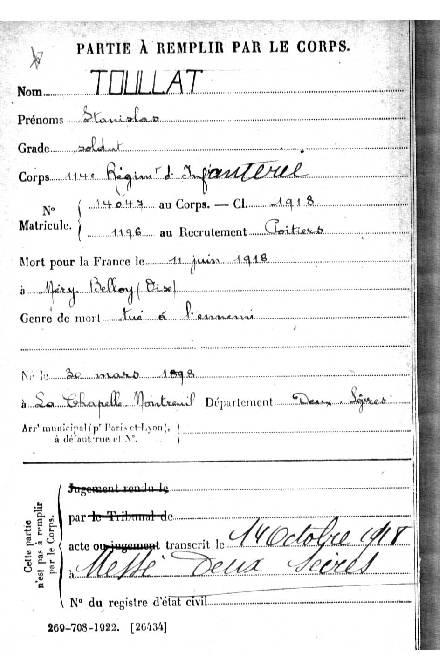 PARTIE À REMPLIR PAR LE CORPS.
Nom TOULLAT
Prénoms Stanislas
Grade soldat
Corps 114e Régimt d'Infanterie
No Matricule. 14047 au Corps. — Cl. 1918
1196 au Recrutement Poitiers
Mort pour la France le 11 juin 1918
à Méry-Belloy (Oise)
Genre de mort tué à l'ennemi
Né le 30 mars 1898
à La Chapelle Montreuil Département Deux-Sèvres
Arrt municipal (pr Paris et Lyon),
à défaut rue et No.
Cette partie
n'est pas à remplir
par le Corps.
Jugement rendu le
par le Tribunal de
acte ou jugement transcrit le 14 Octobre 1918
à Messé Deux Sèvres
No du registre d'état civil
269-708-1922. [26434]